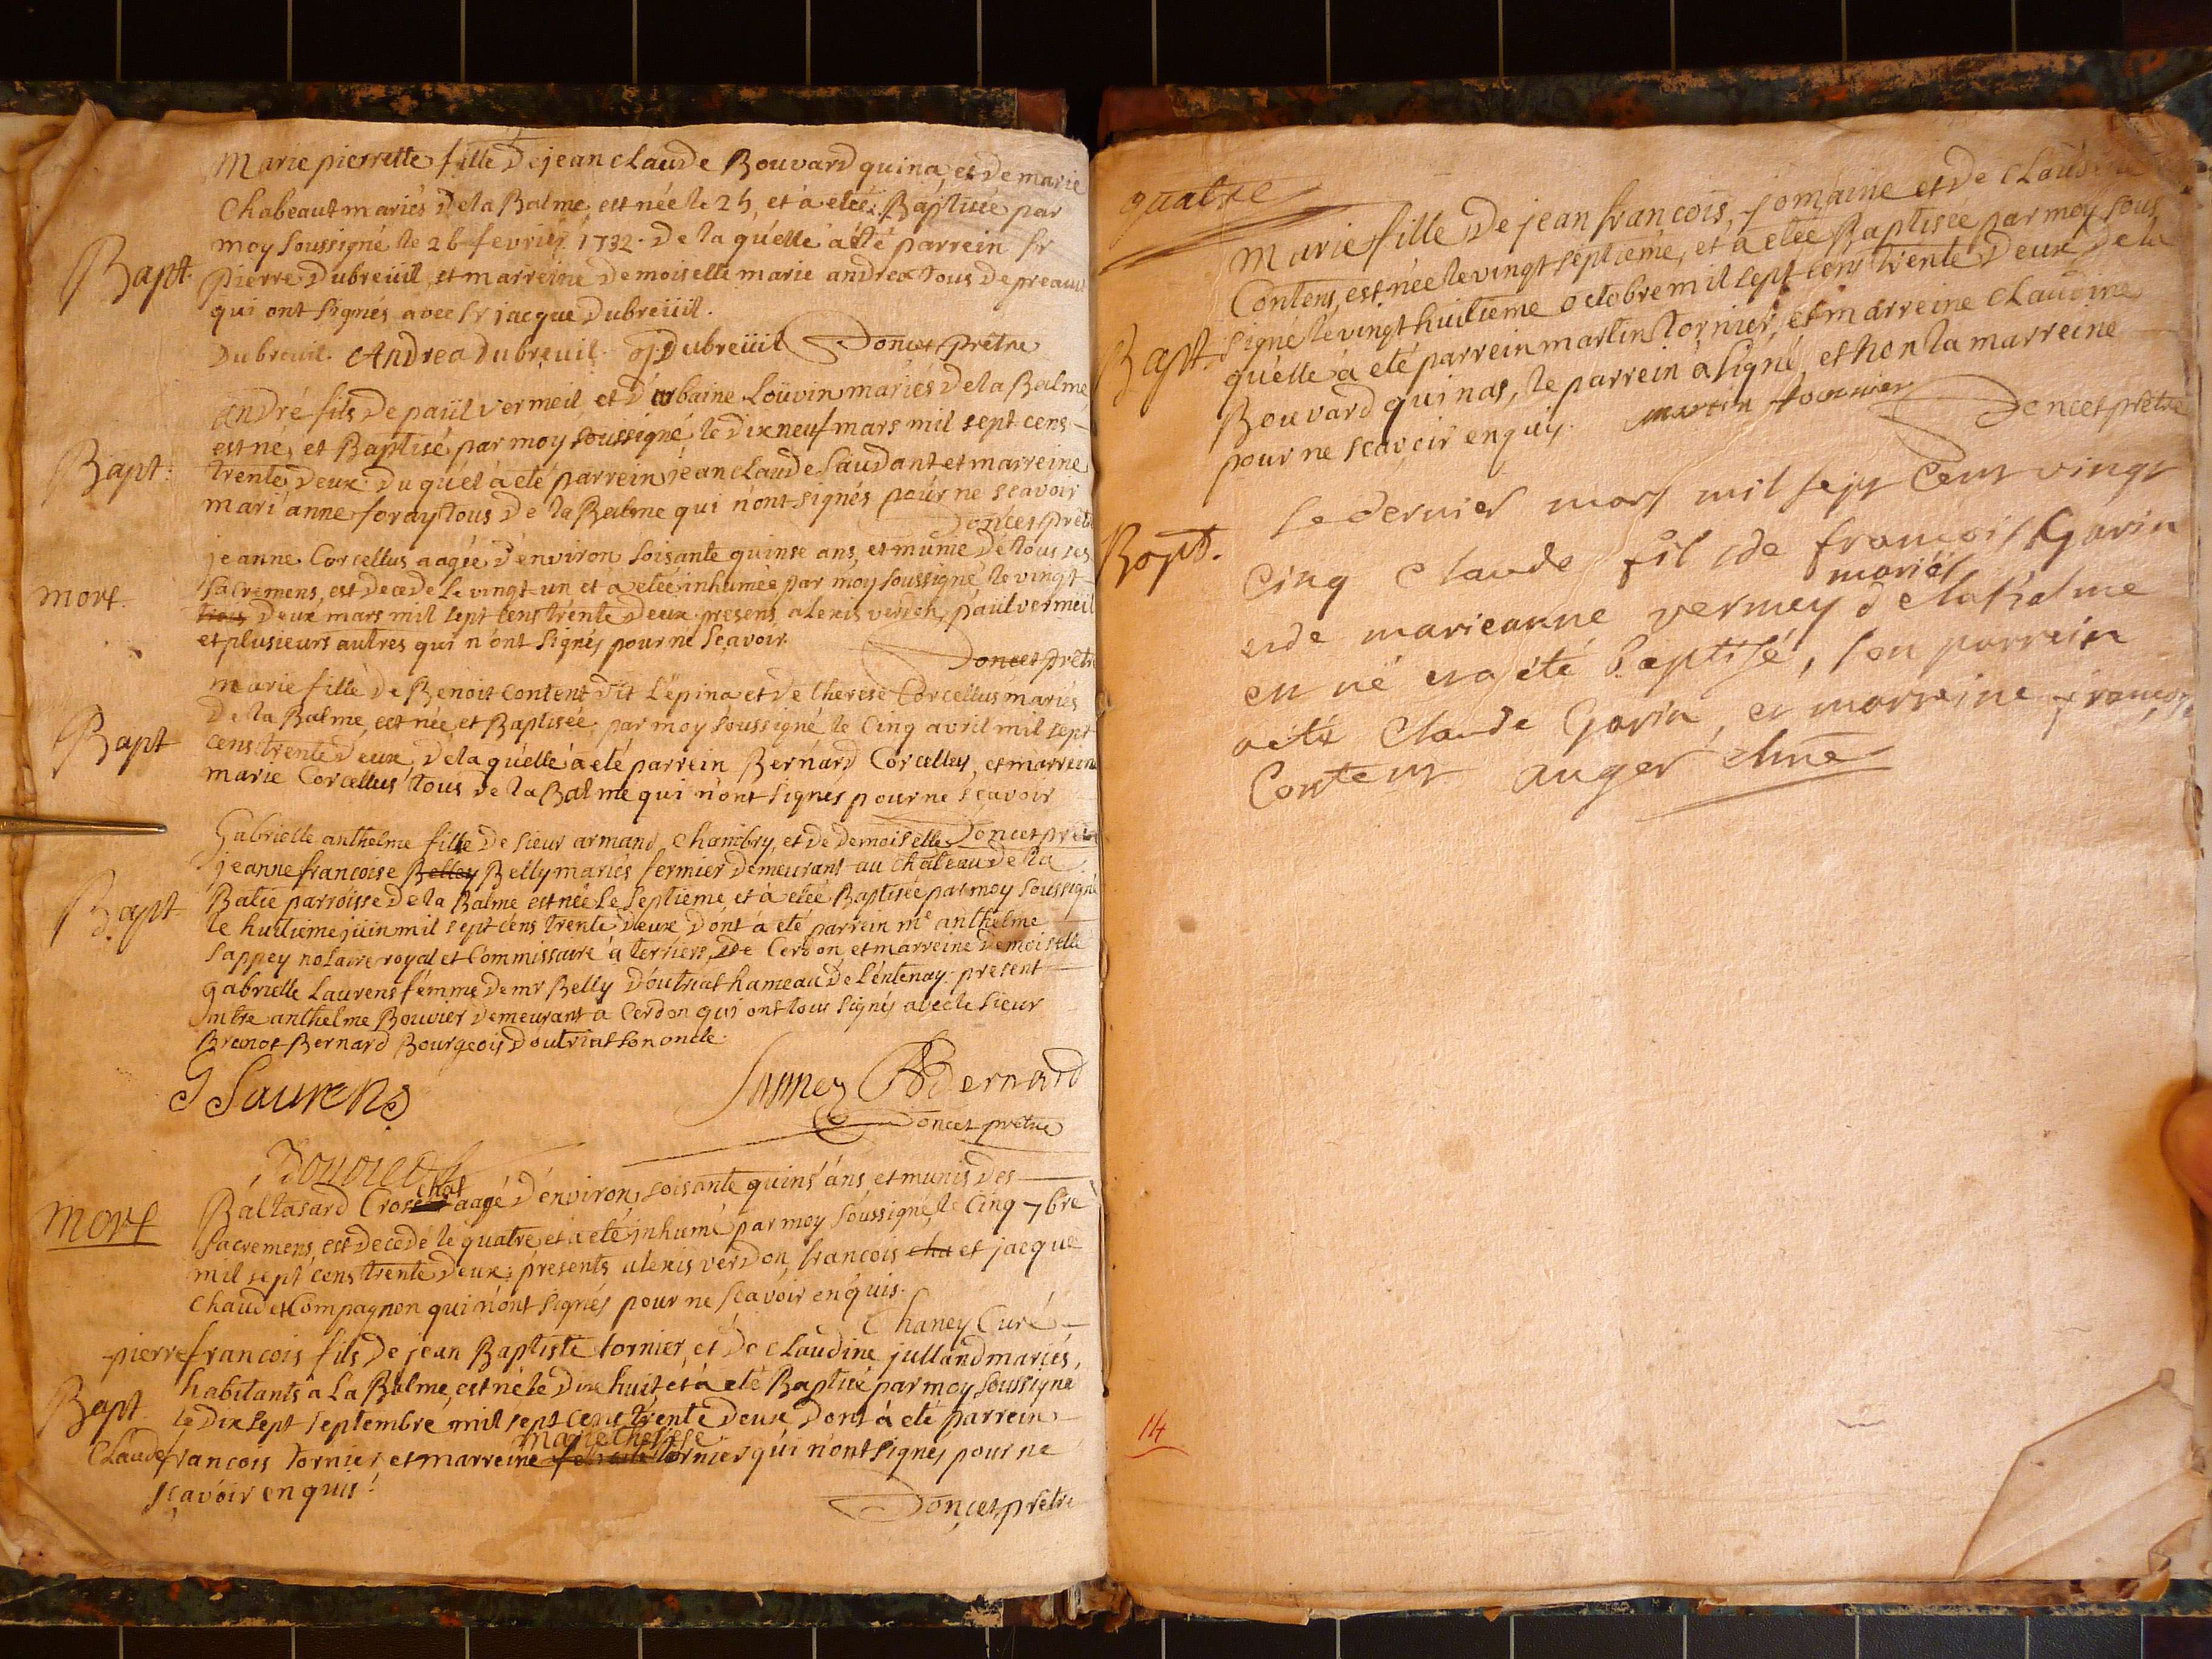 Marie pierrette fille de jean claude Bouvard quina, et de marie
Chabeaut mariés de la Balme, est née le 25, et à etée Baptisée par
moy soussigné le 26 fevrier 1732. de la qu'elle a été parrein sr
Bapt.
pierre Dubreüil, et marreine demoiselle marie andrea tous de preau
qui ont signés avec sr jacque Dubreüil.
Dubreuil. Andrea Dubreuil. Dubreüil Doncet prêtre
andré fils de paül vermeil, et d'urbaine Loüvin mariés de la Balme,
est né, et Baptisé par moy soussigné le dix neuf mars mil sept cens
Bapt:
trente deux. du qu'el à eté parrein jean claude Saudant et marreine
mari'anne foray tous de la Balme qui n'ont signés pour ne scavoir
Doncet prêt
jeanne Corcellus aagée d'environ soisante quinse ans, et munie de tous ses
sacremens, est decede le vingt-un et a etée inhumée par moy soussigné le vingt
mort.
trois deux mars mil sept cens trente deux. presens alexis verdon, paül vermeil
et plusieurs autres qui n'ont signés pour ne scavoir.
Doncet prêtr
marie fille de Benoit Content dit l'épina et de therese Corcellus mariés
de la Balme, est née, et Baptisée, par moy soussigné le cinq avril mil sept
Bapt
cens trente deux, de la qu'elle à eté parrein Bernard Corcellus, et marrein
marie Corcellus tous de la Balme qui n'ont signés pour ne scavoir
Doncet prêtr
Gabrielle anthelme fille de sieur armand Chambry, et de demoiselle
jeanne francoise Belley Belly mariés fermier demeurant au chateau de la
Batie parroisse de la Balme est née le septieme, et à etée Baptisée par moy soussigné
Bapt
le huitieme jüin mil sept cens trente deux dont à eté parrein me anthelme
sappey notaire royal et Commissaire à terriers, de Cerdon, et marreine demoiselle
gabrielle Laurens fémme de mr Belly d'outriat hameau de l'entenay. present
mtre anthelme Bouvier demeurant a Cerdon qui ont tous signés avec le sieur
Bernard Bourgeois d'outriat son oncle.
G Laurens
Bernard
Doncet prêtre
Baltasard aagé d'environ soisante quins' ans et munis des
mort
sacremens, est decedé le quatre et à eté inhumé par moy soussigné, le cinq 7bre
mil sept cens trente deux: présents alexis verdon, francois cha et jacque
chaud et Compagnon qui n'ont signés pour ne scavoir enquis.
Chaney Curé
pierre francois fils de jean Baptiste tornier, et de claudine julland mariés,
habitants a la Balme, est né le dix huit et à eté Baptisé par moy soussigné
Bapt.
le dix sept septembre mil sept cens trente deux dont à eté parrein
marie therese
Claude francois tornier et marreine tornier qui n'ont signés pour ne
scavoir enquis.
Doncet prêtre
quatre
Marie fille de jean francois jomaine et de claudine
Contens, est née le vingt septieme, et à etée Baptisée par moy sous
signé le vingt huitieme octobre mil sept cens trente deux de la
Bapt.
qu'elle à eté parrein martin tornier, et marreine claudine
Bouvard quinas, le parrein à signé, et non la marreine
pour ne scavoir enquis. martin tournier
Doncet prêtre
le dernier mars mil sept cent vingt
Bapt.
cinq claude fil de francois Gorin
mariés
et de marieanne vermey de la balme
est né et a été baptisé, son parrein
a été Claude Gorin, et marreine francoise
Contens auger
14